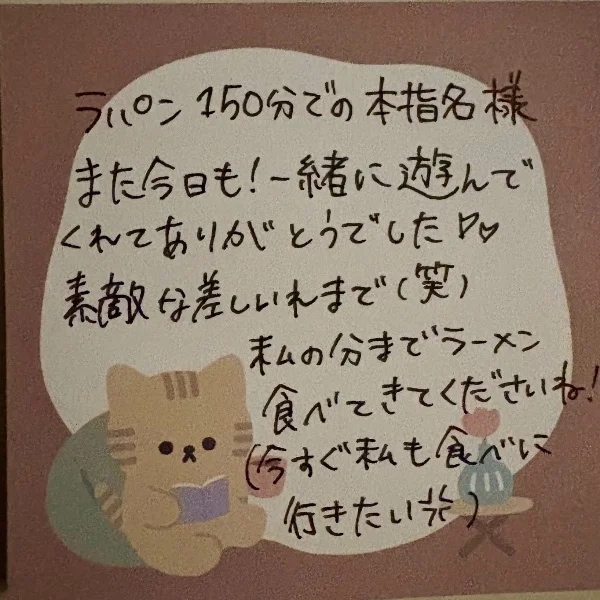 ラパン 150分での本指名様
また今日も!一緒に遊んで
くれてありがとうでした♡♡
素敵な差しいれまで(笑)
私の分までラーメン
食べてきてくださいね!
(今すぐ私も食べに
行きたい笑)